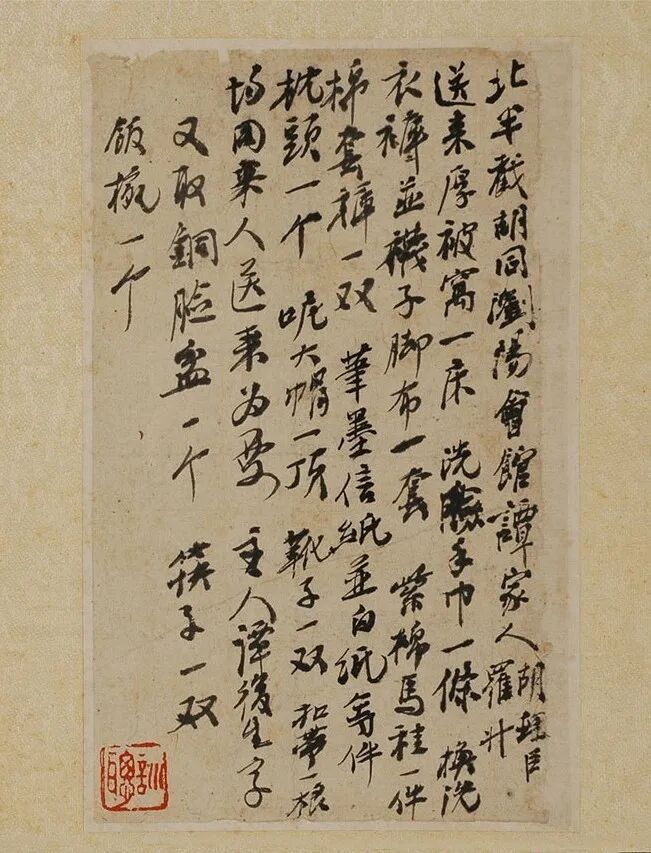 北半截胡同瀏陽會館譚家人胡理臣
羅升
送来厚被窩一床 洗臉手巾一條 換洗
衣褲並襪子脚布一套 紫棉馬褂一件
棉套褲一双 筆墨信紙並白紙等件
枕頭一个 呢大帽一顶 靴子一双 扣帶一根
均同来人送来为要 主人譚復生字
又取銅脸盆一个 筷子一双
飯碗一个